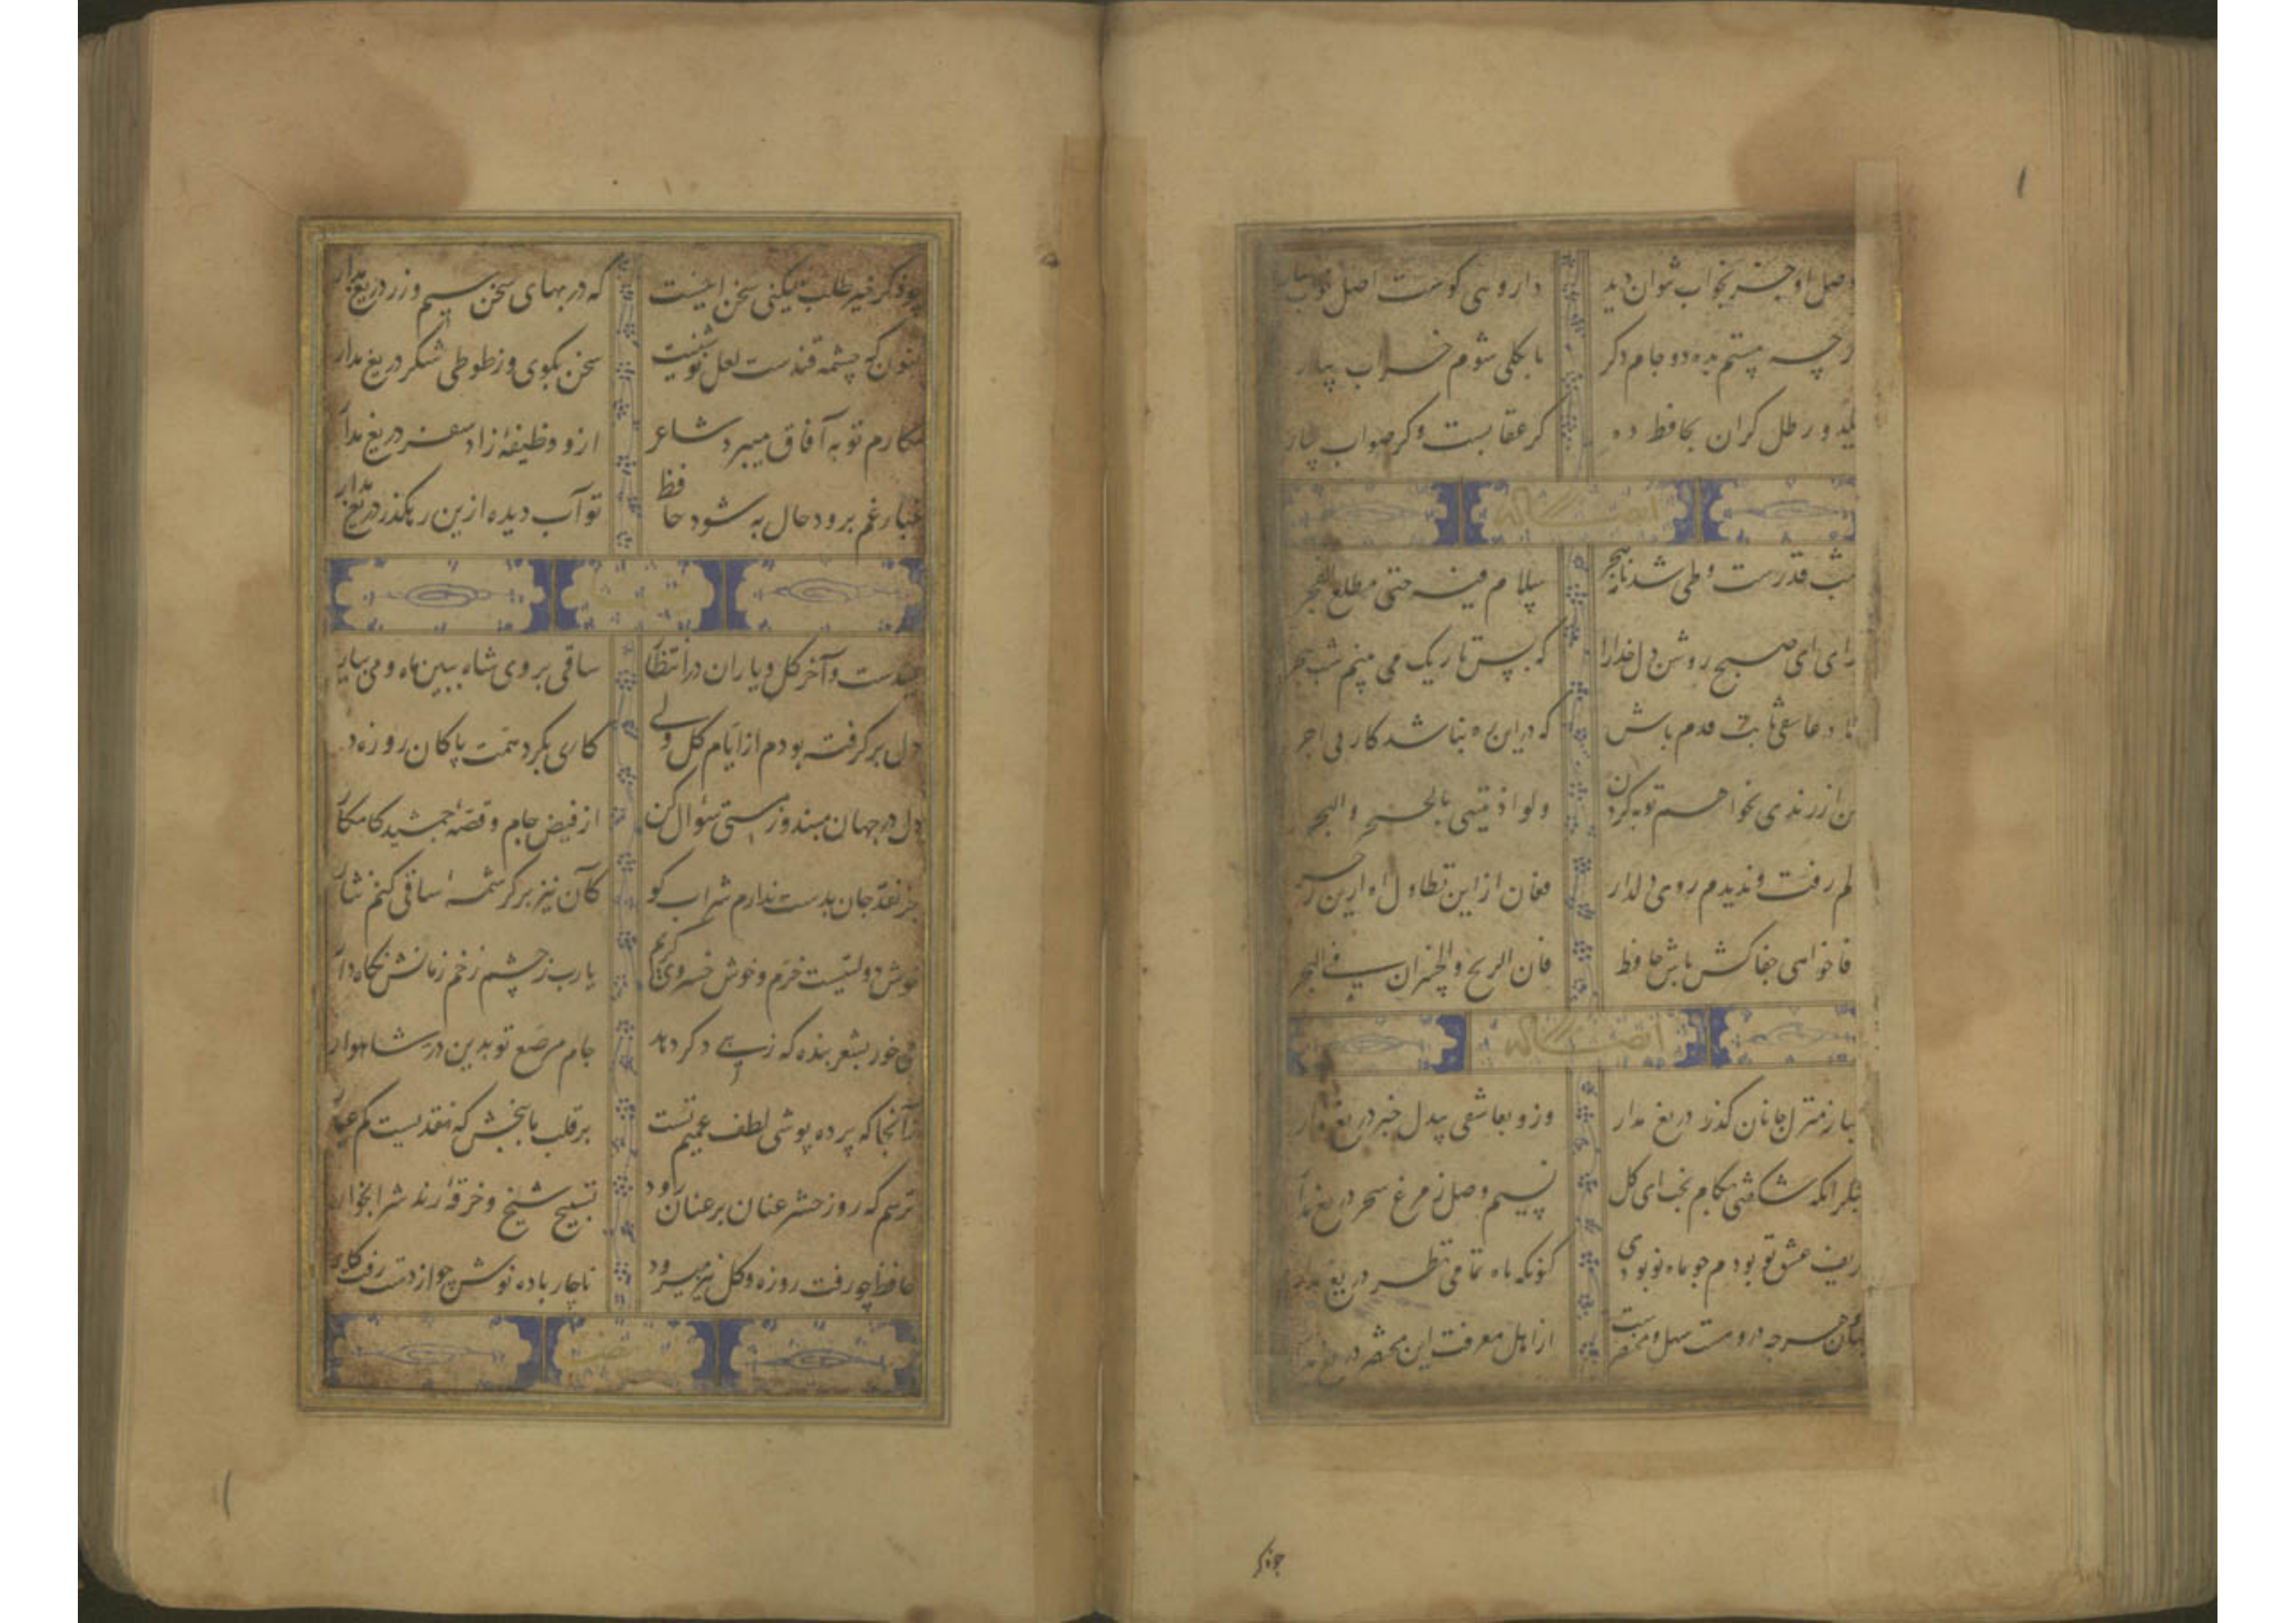 وصل او جز بخواب نتوان دید داروی کوست اصل خواب بیار
کرچه مستم بده دو جام دکر تا بکلی شوم خراب بیار
یکدو رطل کران بحافظ ده کر عقابست و کر صواب بیار
ایضا له
شب قدرست و طی شد نامه هجر سلام فیه حتی مطلع الفجر
برای ای صبح روشن دل خدارا که بس تاریک می بینم شب هجر
دلا در عاشقی ثابت قدم باش که در این ره نباشد کار بی اجر
من از رندی نخواهم توبه کردن ولو اذیتنی بالهجر والحجر
دلم رفت و ندیدم روی دلدار فغان از این تطاول اه ازین زجر
وفا خواهی جفاکش باش حافظ فان الربح والخسران فی التجر
ایضا له
صبا ز منزل جانان کذر دریغ مدار وزو بعاشق بیدل خبر دریغ مدار
بشکر انکه شکفتی بکام بخت ای کل نسیم وصل ز مرغ سحر دریغ مدار
حریف عشق تو بودم چو ماه نو بودی کنونکه ماه تمامی نظر دریغ مدار
جهان و هرچه دروست سهل و مختصرست از اهل معرفت این مختصر دریغ مدار
چو ذکر
چو ذکر خیر طلب میکنی سخن اینست که در بهای سخن سیم و زر دریغ مدار
کنون که چشمه قندست لعل نوشینت سخن بکوی و ز طوطی شکر دریغ مدار
مکارم تو به آفاق میبرد شاعر ازو وظیفهٔ زاد سفر دریغ مدار
غبار غم برود حال به شود حافظ تو آب دیده ازین رهکذر دریغ مدار
عیدست و آخر کل و یاران در انتظار ساقی بروی شاه ببین ماه و می بیار
دل برکرفته بودم از ایام کل ولی کاری بکرد همت پاکان روزه دار
دل در جهان مبند و ز مستی سئوال کن از فیض جام و قصهٔ جمشید کامکار
جز نقد جان بدست ندارم شراب کو کآن نیز بر کرشمهٔ ساقی کنم نثار
خوش دولتیست خرم و خوش خسروی کریم یارب ز چشم زخم زمانش نکاه دار
می خور بشعر بنده که زیبی دکر دهد جام مرصع تو بدین در شاهوار
زآنجا که پرده پوشی لطف عمیم تست بر قلب ما ببخش که نقدیست کم عیار
ترسم که روز حشر عنان بر عنان رود تسبیح شیخ و خرقهٔ رند شرابخوار
حافظ چو رفت روزه و کل نیز میرود ناچار باده نوش چو از دست رفت کار